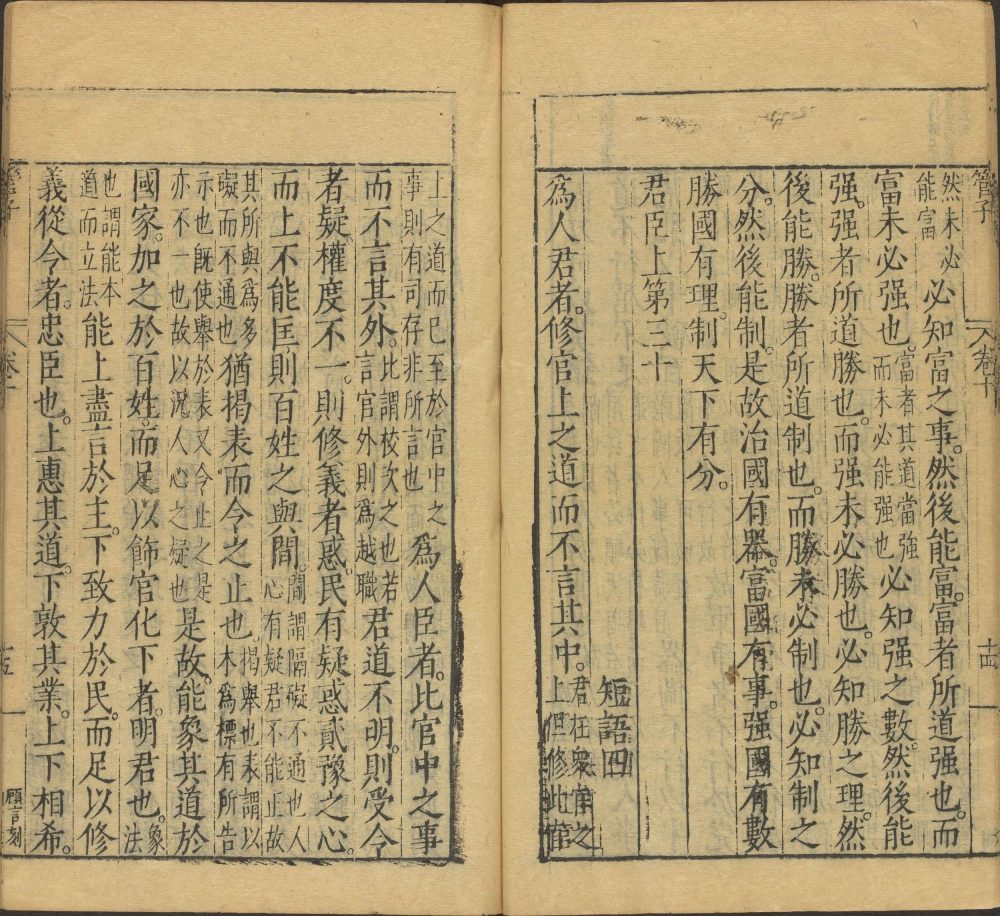 管子 卷十 十四
然未必能富 必知富之事。然後能富。富者所道强也。而
富未必强也。富者其道當强而未必能强也 必知强之數。然後能
强。强者所道勝也。而强未必勝也。必知勝之理。然
後能勝。勝者所道制也。而勝未必制也。必知制之
分。然後能制。是故治國有器。富國有事。强國有數
勝國有理。制天下有分。
君臣上第三十
短語四
爲人君者。修官上之道。而不言其中。君在衆官之上但修此官
上之道而已至於官中之事則有司存非所言也 爲人臣者。比官中之事
而不言其外。比謂校次之也若言官外則爲越職 君道不明。則受令
者疑。權度不一。則修義者惑。民有疑惑貳豫之心。
而上不能匡。則百姓之與間。間謂隔礙不通也人心有疑君不能正故
其所與爲多礙而不通也 猶揭表而令之止也。揭舉也表謂以木爲標有所告
示也旣使舉於表又令止之是亦不一也故以況人心之疑也 是故能象其道於
國家。加之於百姓。而足以飾官化下者。明君也。象法
也謂能本道而立法 能上盡言於主。下致力於民。而足以修
義從令者。忠臣也。上惠其道。下敦其業。上下相希。
管子 卷十 十五 顧言刻